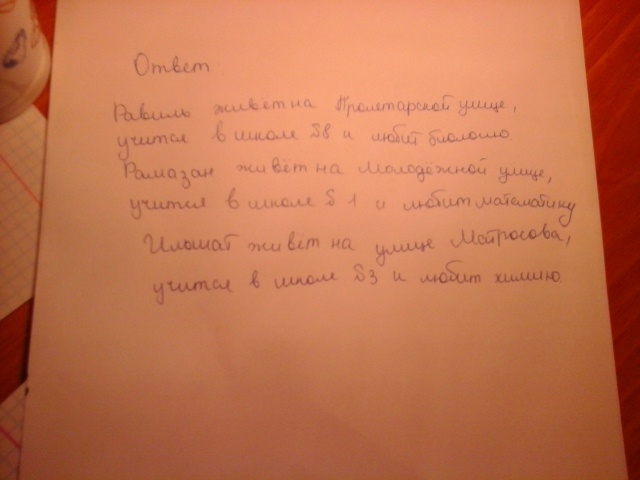 Ответ
Равиль живёт на Пролетарской улице,
учится в школе S8 и любит биологию.
Рамазан живёт на Молодёжной улице,
учится в школе S 1 и любит математику
Ильшат живёт на улице Матросова,
учится в школе S3 и любит химию.